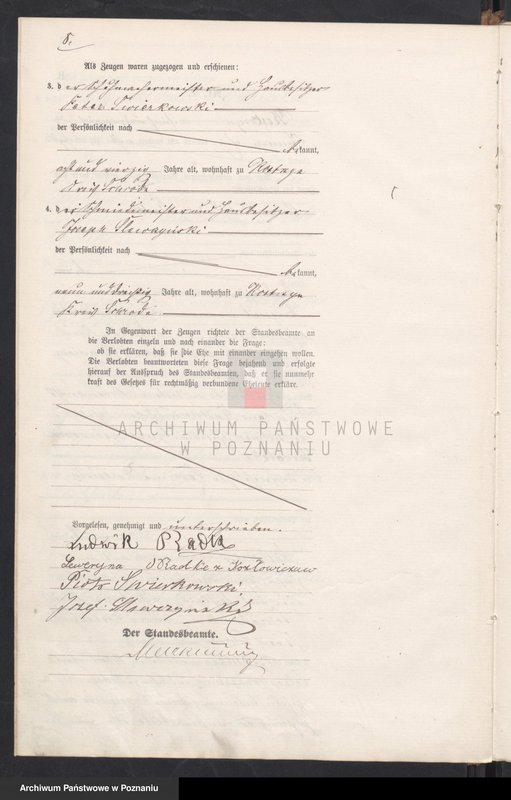 8.
Als Zeugen waren zugezogen und erschienen:
3. der Schuhmachermeister und Hausbesitzer
Peter Swierkowski
der Persönlichkeit nach
bekannt,
acht und vierzig Jahre alt, wohnhaft zu
Kreis Schroda
4. der Schmiedemeister und Hausbesitzer
Joseph
der Persönlichkeit nach
bekannt,
neun und dreißig Jahre alt, wohnhaft zu
Kreis Schroda.
In Gegenwart der Zeugen richtete der Standesbeamte an
die Verlobten einzeln und nach einander die Frage:
ob sie erklären, daß sie die Ehe mit einander eingehen wollen.
Die Verlobten beantworteten diese Frage bejahend und erfolgte
hierauf der Ausspruch des Standesbeamten, daß er sie nunmehr
kraft des Gesetzes für rechtmäßig verbundene Eheleute erkläre.
ARCHIWUM PAŃSTWOWE
W POZNANIU
Vorgelesen, genehmigt und unterschrieben.
Ludwik Radke
Seweryna Radke z
Piotr Swierkowski
Józef
Der Standesbeamte.
Archiwum Państwowe w Poznaniu